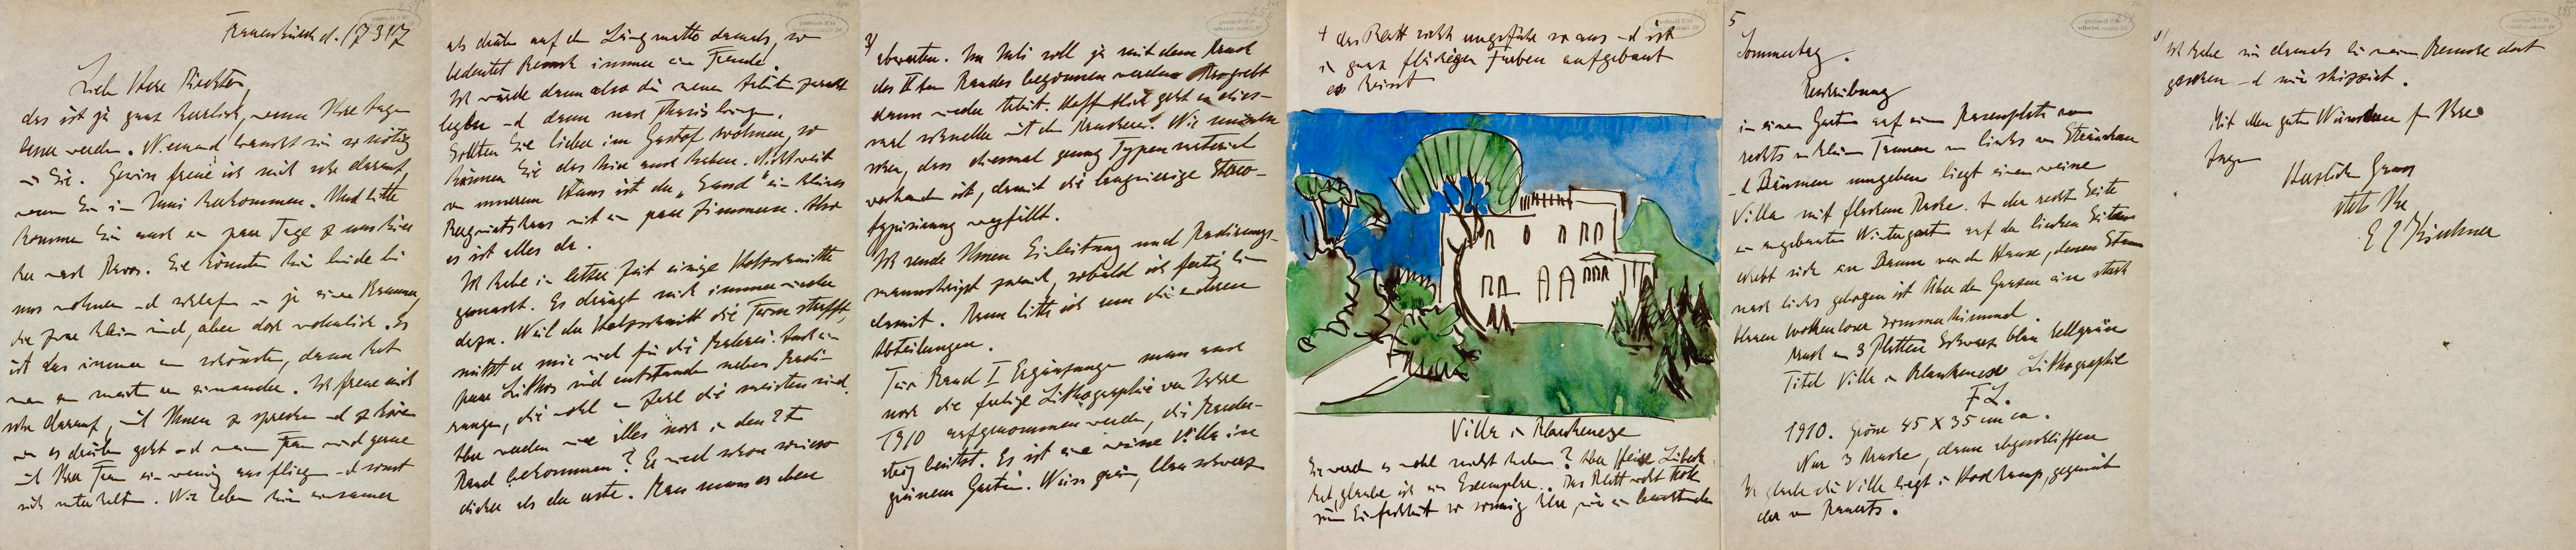 Frauenkirch d. 17 3 17
Lieber Herr Schiefler,
das ist ja ganz herrlich, wenn Ihre Augen
besser werden. Niemand braucht sie so nötig
wie Sie. Gewiss freue ich mich sehr darauf,
wenn Sie im Juni herkommen. Und bitte
kommen Sie auch ein paar Tage zu uns hier
her nach Davos. Sie könnten hier beide bei
uns wohnen und schlafen in je einer Kammer,
die zwar klein sind, aber doch wohnlich. Es
ist das immer am schönsten, denn hat
man am meisten von einander. Ich freue mich
sehr darauf, mit Ihnen zu sprechen und zu hören
wie es drüben geht und meine Frau wird gerne
mit Ihrer Frau ein wenig ausfliegen und sonst
sich unterhalten. Wir leben hier einsamer
als drüben auf der Längmatte damals, so
bedeutet Besuch immer eine Freude.
Ich würde dann also die neuen Arbeiten zurecht
legen und dann nach
Sollten Sie lieber im Gasthof wohnen, so
können Sie das hier auch haben. Nicht weit
von unserem Haus ist der „Sand" ein kleines
Bergwirtshaus mit ein paar Zimmern. Also
es ist alles da.
Ich habe in letzter Zeit einige Holzschnitte
gemacht. Es drängt mich immer wieder
dazu. Weil der Holzschnitt die Form strafft,
nützt er mir viel für die Malerei. Auch ein
paar Lithos sind entstanden neben Radie-
rungen, die wohl an Zahl die meisten sind.
Aber werden wir alles noch in den 2t
Band bekommen? Er wird schon sowieso
dicker als der erste. Man muss es eben
3)
abwarten. Im Juli soll ja mit dem Druck
des II ten Bandes begonnen werden
dann wieder Arbeit. Hoffentlich geht es dies-
mal schneller mit dem Drucken. Wir müssten
sehen, dass diesmal genug Typenmaterial
vorhanden ist, damit die langwierige Stereo-
typisierung wegfällt.
Ich sende Ihnen Einleitung und Radierungs-
manuskript zurück, sobald ich fertig bin
damit. Dann bitte ich um die anderen
Abteilungen.
Für Band I Ergänzungen muss auch
noch die farbige Lithographie vom Jahre
1910 aufgenommen werden, die
Es ist eine weisse Villa in
grünem Garten. Weiss grün, blau schwarz
4 das Blatt sieht ungefähr so aus und ist
in ganz flächigen Farben aufgebaut
es heisst
Villa in Blankenese
Sie werden es wohl nicht haben? Aber Heise Lübeck
hat, glaube ich ein Exemplar. Das Blatt wirkt trotz
seiner Einfachheit so sonnig klar, wie ein leuchtender
5
Sommertag.
Beschreibung
in einem Garten auf einem Rasenplatz von
rechts von kleinen Tannen von links von Sträuchern
und Bäumen umgeben liegt eine weisse
Villa mit flachem Dache. An der rechten Seite
ein angebauter Wintergarten auf der linken Seite
erhebt sich ein Baum vor dem Hause, dessen Stamm
nach links gebogen ist. Über dem Ganzen ein stark
blauer wolkenloser Sommerhimmel.
Druck von 3 Platten Schwarz blau hellgrün
Titel Villa in Blankenese Lithographie
F L.
1910. Grösse 45 x 35 cm ca.
Nur 3 Drucke, dann abgeschliffen
Ich glaube die Villa liegt in Hochkamp, gegenüber
der von Rauerts.
Ich habe sie damals bei meinem Besuche dort
gesehen und mir skizziert.
Mit allen guten Wünschen für Ihre
Augen
Herzlichen Gruss
stets Ihr
E L Kirchner